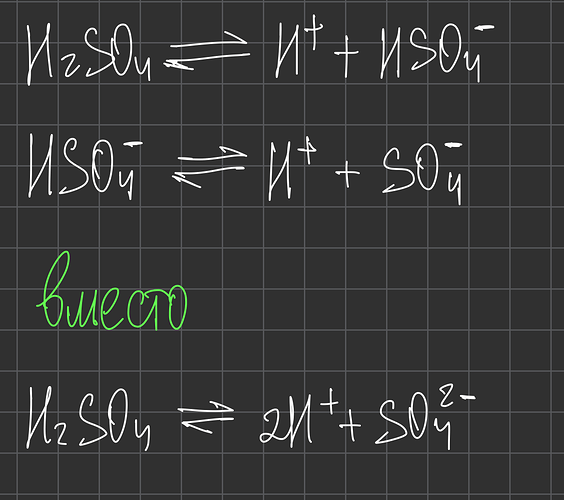 H₂SO₄ ⇌ H⁺ + HSO₄⁻
HSO₄⁻ ⇌ H⁺ + SO₄⁻
вместо
H₂SO₄ ⇌ 2H⁺ + SO₄²⁻